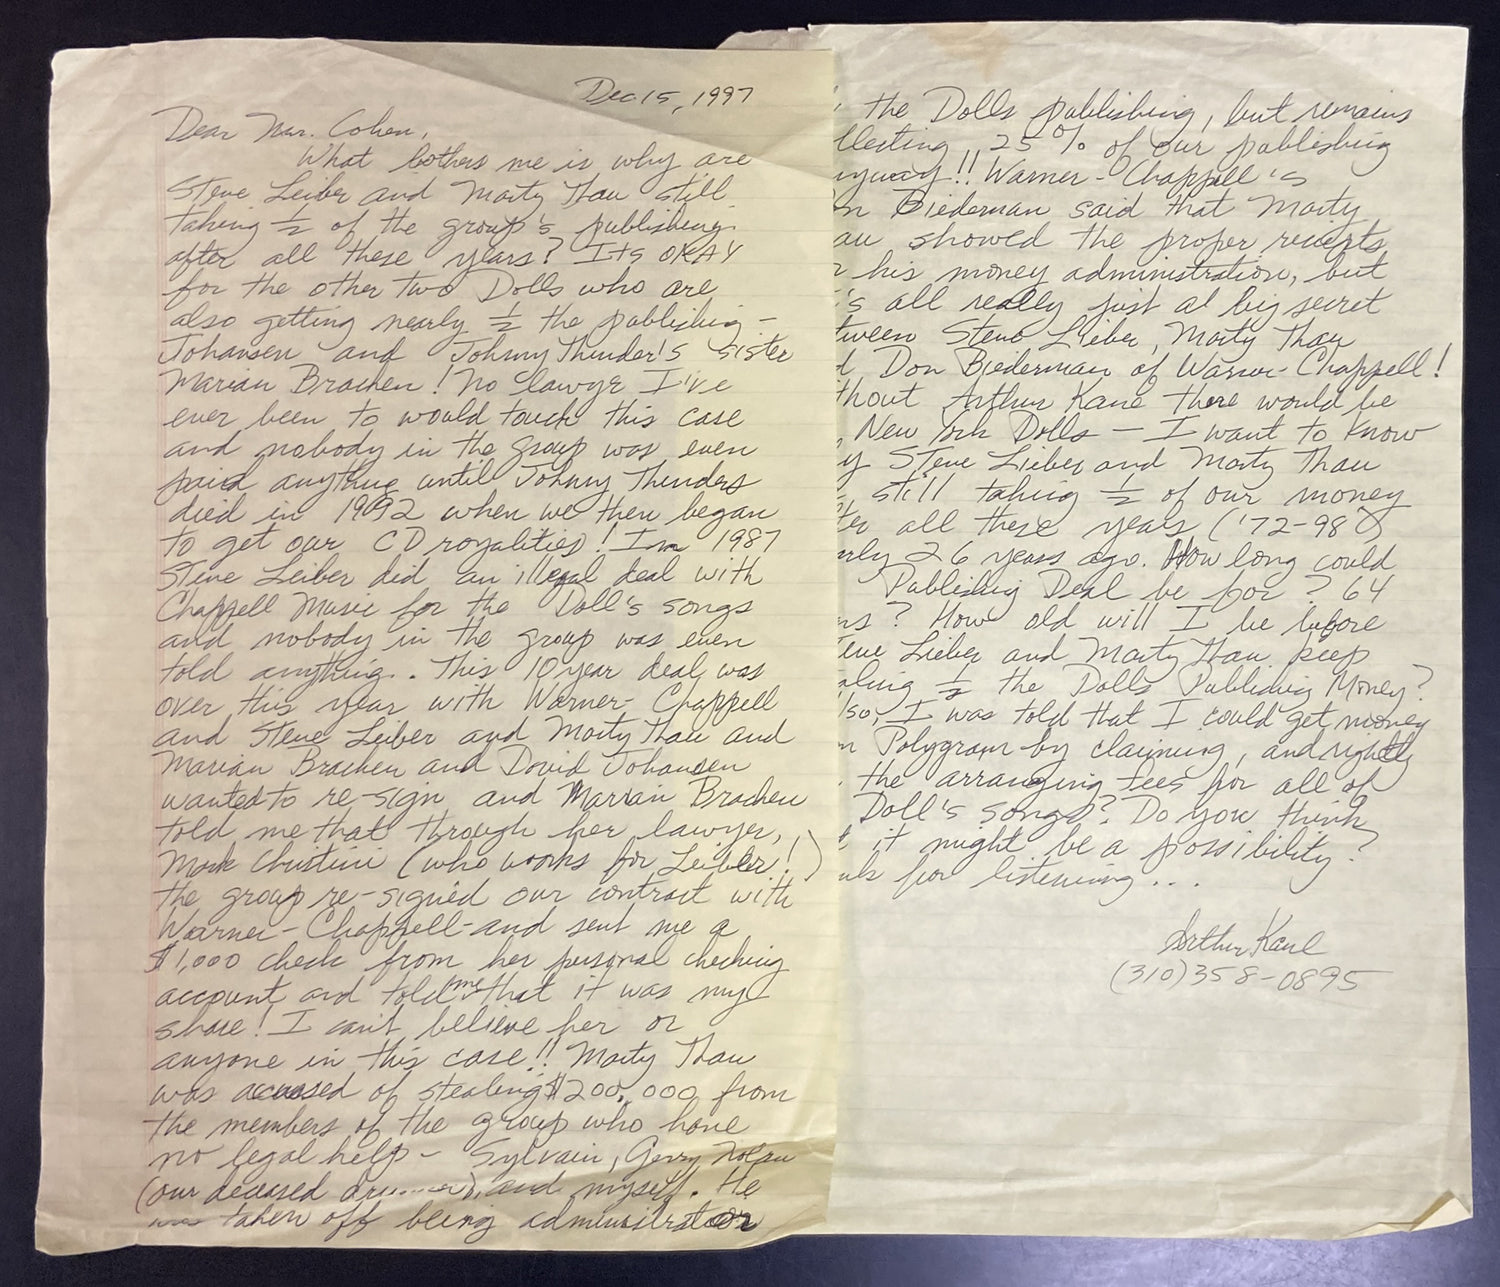 Dec 15, 1997
Dear Mr. Cohen,
What bothers me is why are
Steve Leiber and Marty Thau still
taking ½ of the group's publishing
after all these years? Its OKAY
for the other two Dolls who are
also getting nearly ½ the publishing -
Johansen and Johnny Thunder's sister
Marian Brachen! No lawyr I've
ever been to would touch this case
and nobody in the group was even
paid anything until Johnny Thunders
died in 1992 when we then began
to get our CD royalities! In 1987
Steve Leiber did an illegal deal with
Chappell Music for the Doll's songs
and nobody in the group was even
told anything. This 10 year deal was
over this year with Warner-Chappell
and Steve Leiber and Marty Thau and
Marian Brachen and David Johansen
wanted to re-sign and Marian Brachen
told me that through her lawyer,
Mark Christini (who works for Leiber!)
the group re-signed our contract with
Warner-Chappell-and sent me a
$1,000 check from her personal checking
account and told me that it was my
share! I can't believe her or
anyone in this case!! Marty Thau
was accused of stealing $200,000 from
the members of the group who have
no legal help - Sylvain, Gerry Nolan
(our deceased drummer), and myself. He
was taken off being administrator
the Dolls publishing, but remains
llecting 25% of our publishing
nyway!! Warner-Chappell's
on Biederman said that Marty
au showed the proper reciepts
r his money administration, but
's all really just al big secret
tween Steve Lieber, Marty Thau
d Don Biederman of Warner-Chappell!
thout Arthur Kane there would be
New York Dolls - I want to know
y Steve Lieber and Marty Thau
still taking ½ of our money
ter all these years ('72-98?)
arly 26 years ago. How long could
Publishig Deal be for? 64
rs? How old will I be before
teve Lieber and Marty Thau peep
aling ½ the Dolls Publishing Money?
lso, I was told that I could get money
m Polygram by claiming, and rightly
the arranging fees for all of
Doll's songs? Do you think
t it might be a possibility?
nks for listening...
Arthur Kane
(310)358-0895